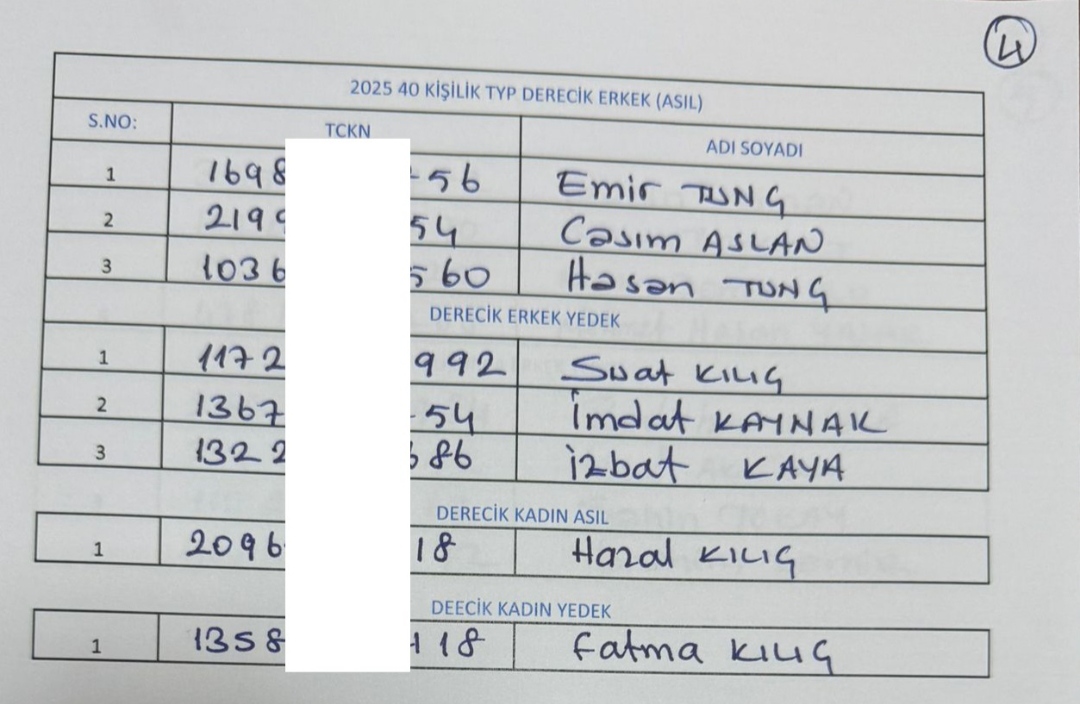 4
2025 40 KİŞİLİK TYP DERECİK ERKEK (ASIL)
S.NO: TCKN ADI SOYADI
1 1698 56 Emir TUNÇ
2 219 54 Casım ASLAN
3 1036 560 Hasan TUNÇ
DERECİK ERKEK YEDEK
1 1172 992 Suat KILIÇ
2 1367 54 İmdat KAYNAK
3 1322 86 İzbat KAYA
DERECİK KADIN ASIL
1 2096 18 Hazal KILIÇ
DEECİK KADIN YEDEK
1 1358 18 Fatma KILIÇ